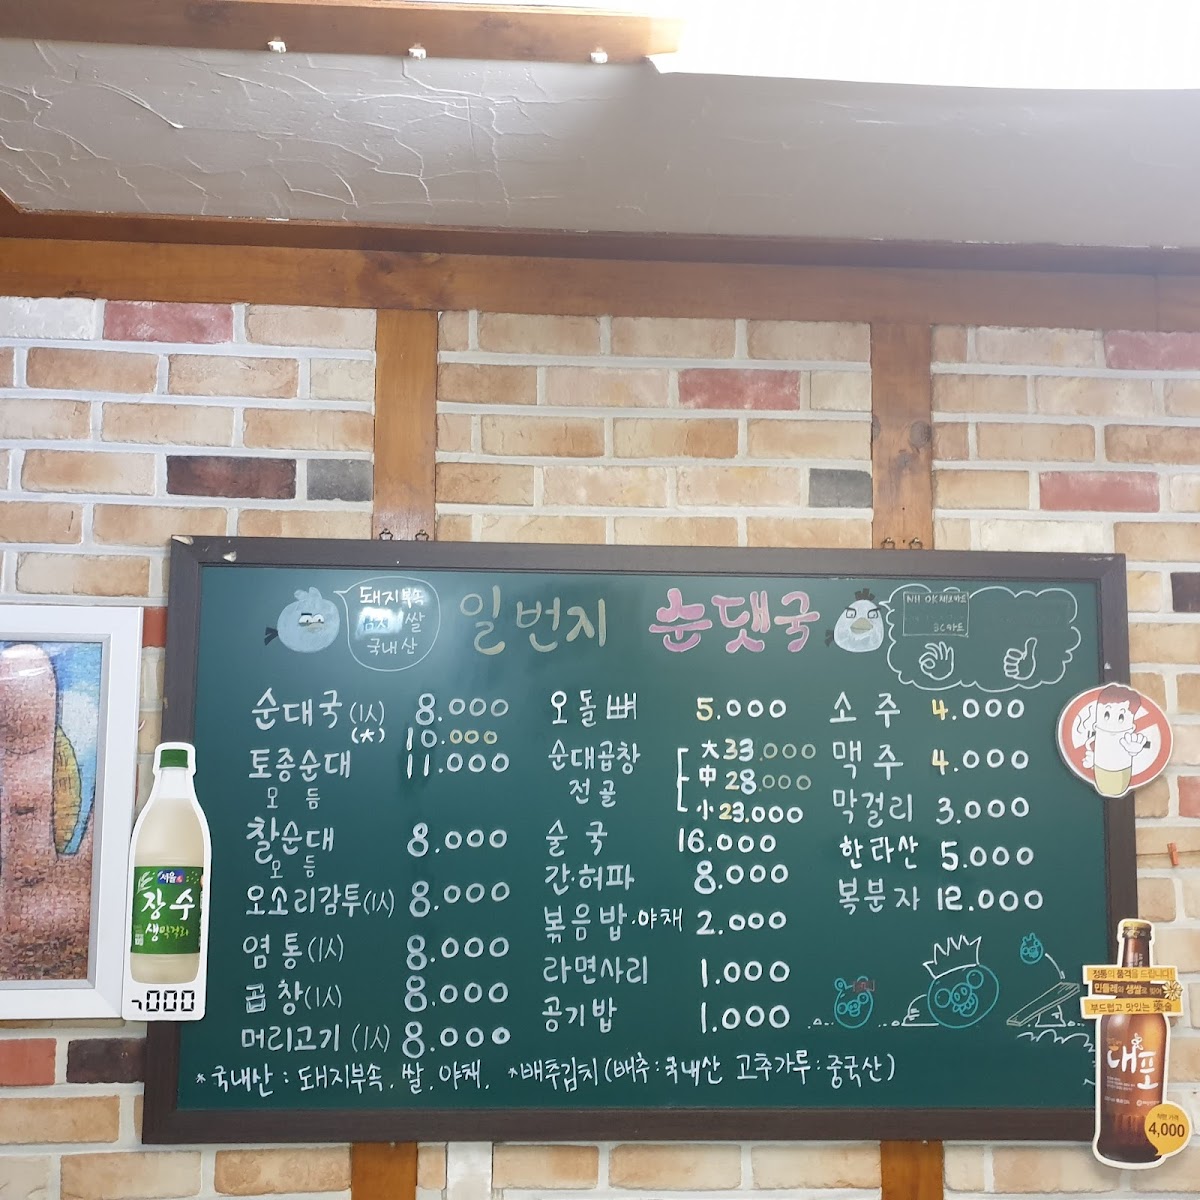 돼지부속
쌀
국내산
일번지 순댓국
NH OK체크카드
BC카드
순대국(1人) 8.000
(大) 10.000
토종순대 11.000
모듬
찰순대 8.000
모듬
오소리감투(1人) 8.000
염통(1人) 8.000
곱창(1人) 8.000
머리고기(1人) 8.000
오돌뼈 5.000
순대곱창 大33.000
전골 中28.000
小23.000
술국 16.000
간·허파 8.000
볶음밥·야채 2.000
라면사리 1.000
공기밥 1.000
소주 4.000
맥주 4.000
막걸리 3.000
한라산 5.000
복분자 12.000
*국내산 : 돼지부속. 쌀. 야채. *배추김치(배추:국내산 고추가루:중국산)
서울
장수
생막걸리
000
정통의 품격을 드립니다!
민들레와 생쌀로 빚어
부드럽고 맛있는 藥술
대포
4,000